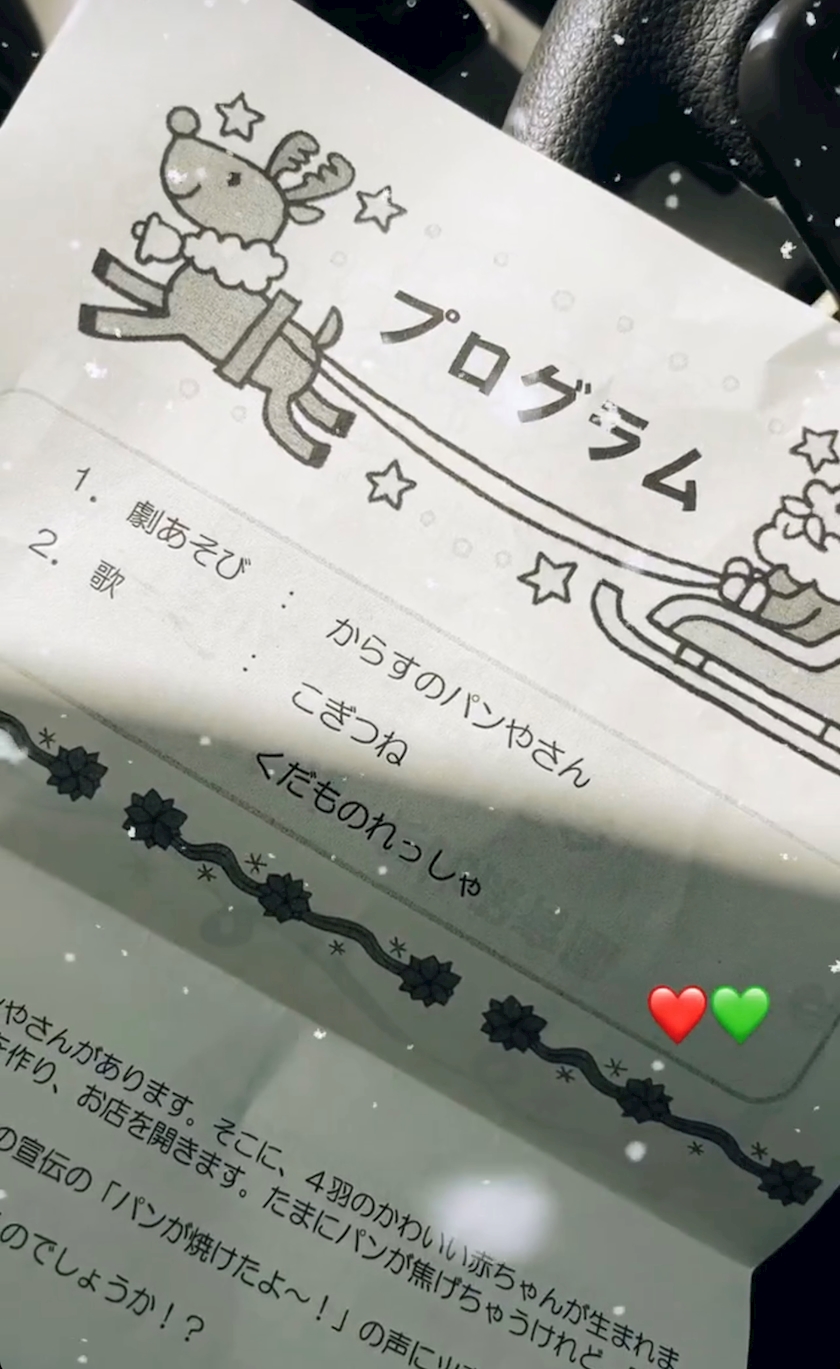 プログラム
1. 劇あそび : からすのパンやさん
2. 歌 : こぎつね
くだものれっしゃ
やさんがあります。そこに、4羽のかわいい赤ちゃんが生まれま
を作り、お店を開きます。たまにパンが焦げちゃうけれど、
の宣伝の「パンが焼けたよ〜!」の声に
のでしょうか!?